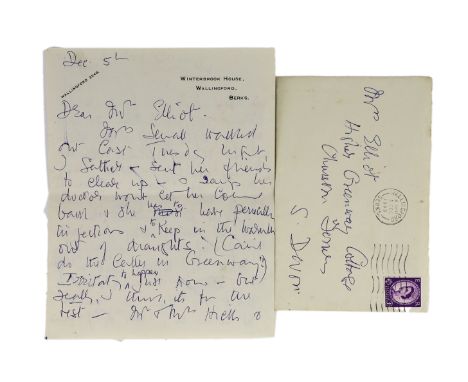 Dec 5th
WALLINGFORD 2248
WINTERBROOK HOUSE,
WALLINGFORD,
BERKS.
Dear Mrs Elliot.
Mrs Sewell walked
out last Tuesday night,
I gather - sent her friends
to clear up - says her
doctor wont let her come
back & she has to have penicillin
injections & to keep in the warm
out of draughts! (
do the in Greenway?)
to happen just now - but
really, I think, its for the
best - Mr & Mrs &
Mrs Elliot
Higher Greenway Cottage
Churston Ferrers
S. Devon